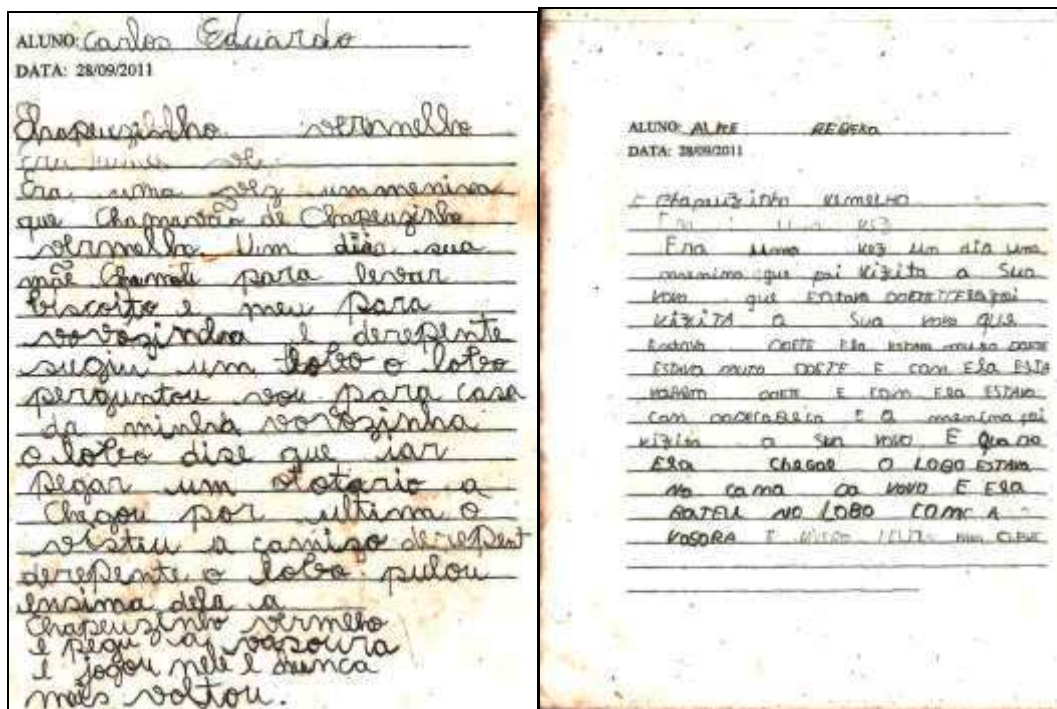 ALUNO: Carlos Eduardo
DATA: 28/09/2011
Chapeuzinho vermelho
Era uma ve
Era uma vez um menina
que Chamavão de Chapeuzinho
vermelho Um dia sua
mãe Chamou para levar
biscoito e meu para
vovozinha e derepente
sugiu um lobo o lobo
perguntou vou para casa
da minha vovozinha
o lobo dise que iar
pegar um otario a
Chegou por ultima o
vistiu a camiso derepent
derepente o lobo pulou
ensima dela a
Chapeuzinho vermelho
e pegu a vasoura
e jogou nele e nunca
mais voltou.
ALUNO: REBEKA
DATA: 28/09/2011
Chapeuzinho VEMELHO
VEZ
Era uma VEZ um dia uma
menima que foi Vizita a Sua
VOVO que ESTAVA ELA foi
VIZITA a Sua vovo que
Estava DOETE Ela ESTAVA muito DOETE
ESTAVA muito DOETE E com ELA ESTA
DOETE E com ELA ESTAVA
Com E a menima foi
Vizita a Sua VOVO E
ELA Chegar O LOBO ESTAVA
Na cama da VOVO E ELA
BATEU NO LOBO COM A
VASORA E